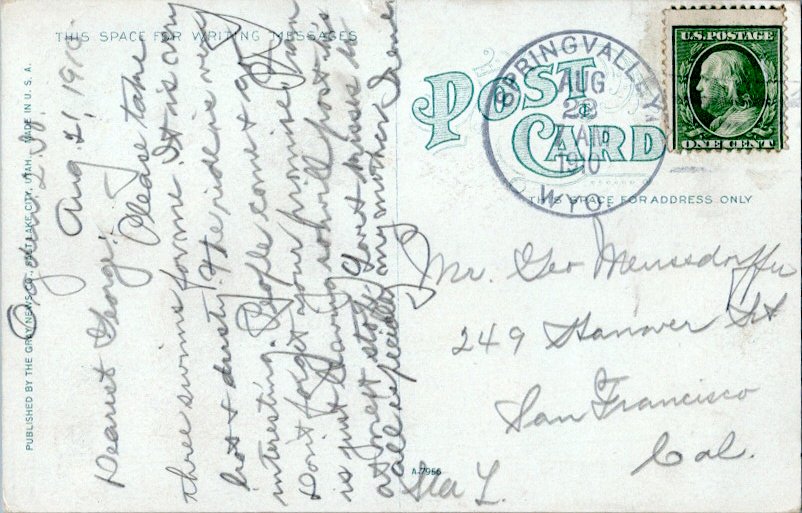 THIS SPACE FOR WRITING MESSAGES
Ogden
Aug. 21, 1910.
Dearest George:
Please take
three swims for me. It is very
hot & dusty. The ride is very
interesting. People come & go.
Don't forget your promise. Train
is just leaving so will post this
at next stop. Love & kisses to
all especially my mother
PUBLISHED BY THE GRAY NEWS CO., SALT LAKE CITY, UTAH. MADE IN U. S. A.
POST CARD
SPRINGVALLEY
AUG
22
AM
1910
WYO.
U.S. POSTAGE
ONE CENT
THIS SPACE FOR ADDRESS ONLY
Mr. Geo Meussdorffer
249 Hanover St
San Francisco
Cal.
Sta L.
A-7956